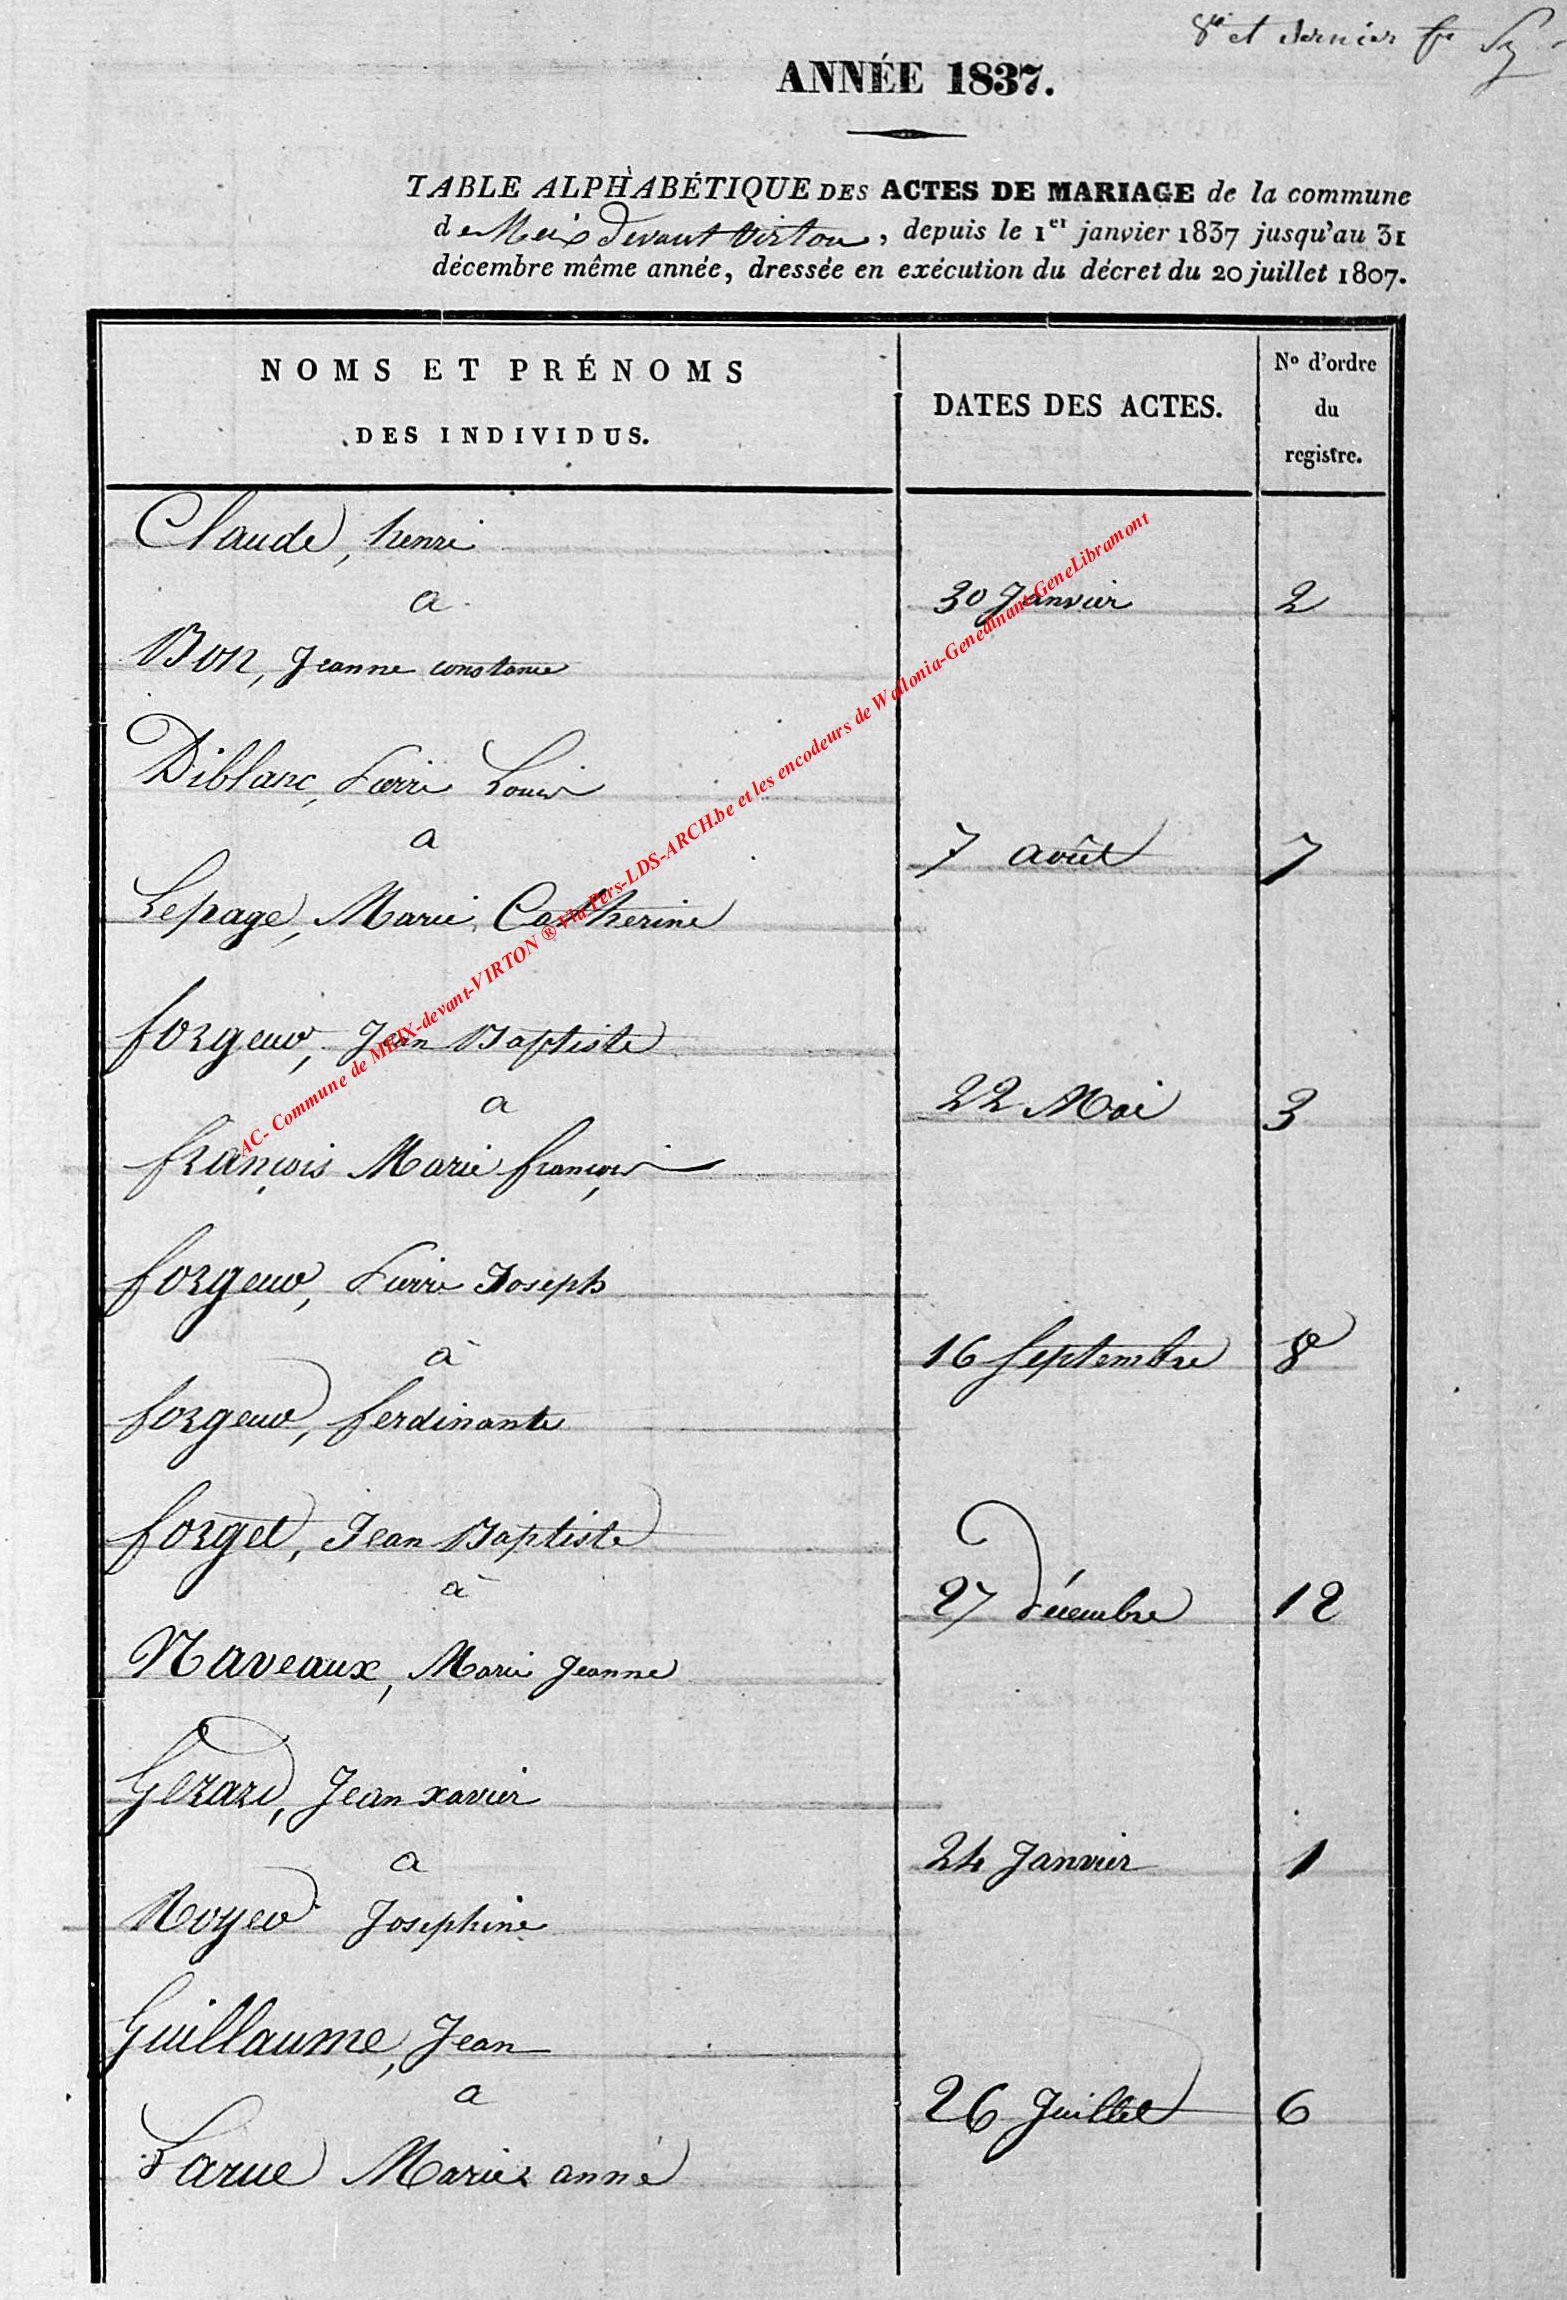 8e et dernier
ANNÉE 1837.
TABLE ALPHABÉTIQUE DES ACTES DE MARIAGE de la commune
de Meix devant Virton, depuis le 1er janvier 1837 jusqu'au 31
décembre même année, dressée en exécution du décret du 20 juillet 1807.
NOMS ET PRÉNOMS
DES INDIVIDUS.
DATES DES ACTES.
No d'ordre
du
registre.
Claude, henri
a 30 Janvier 2
Bon, Jeanne constance
Diblanc, Pierre Louis
a 7 août 7
Lepage, Marie Catherine
forgeur, Jean Baptiste
a 22 Mai 3
françois Marie françois
forgeur, Pierre Joseph
à 16 Septembre 8
forgeur, ferdinante
forget, Jean Baptiste
à 27 Décembre 12
Naveaux, Marie Jeanne
Gerard, Jean xavier
a 24 Janvier 1
Noyer Josephine
Guillaume, Jean
a 26 Juillet 6
Larue Marie anne
AC- Commune de MEIX-devant-VIRTON ® Via Pers-LDS-ARCH.be et les encodeurs de Wallonia-Genedinant-GeneLibramont